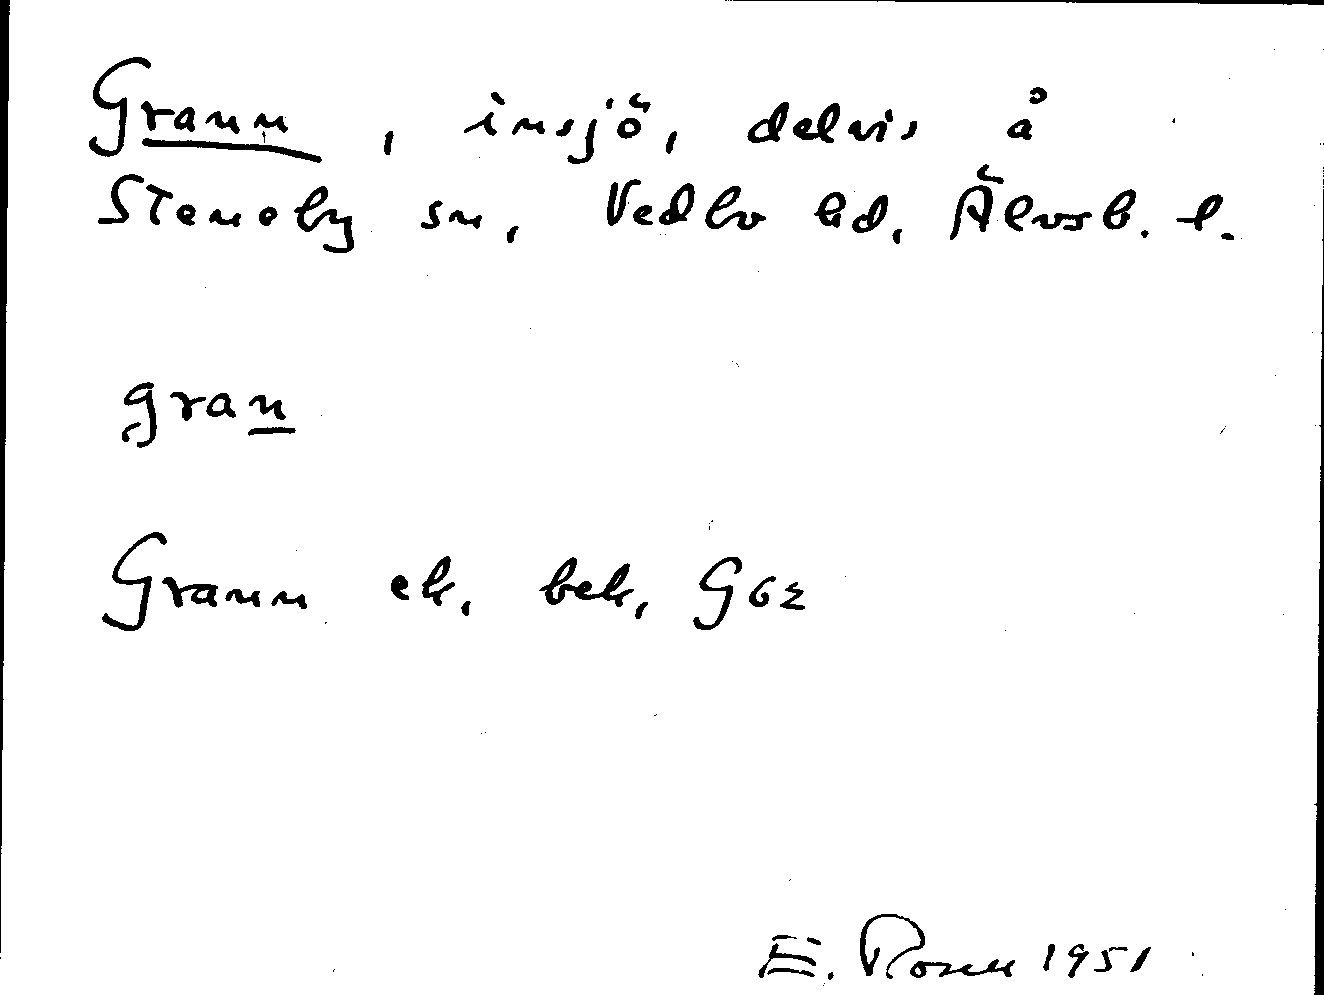 Grann, insjö, delvis å
Steneby sn, Vedbo hd, Älvsb. l.
gran
Grann ek. bek, G62
E. Rosell 1951